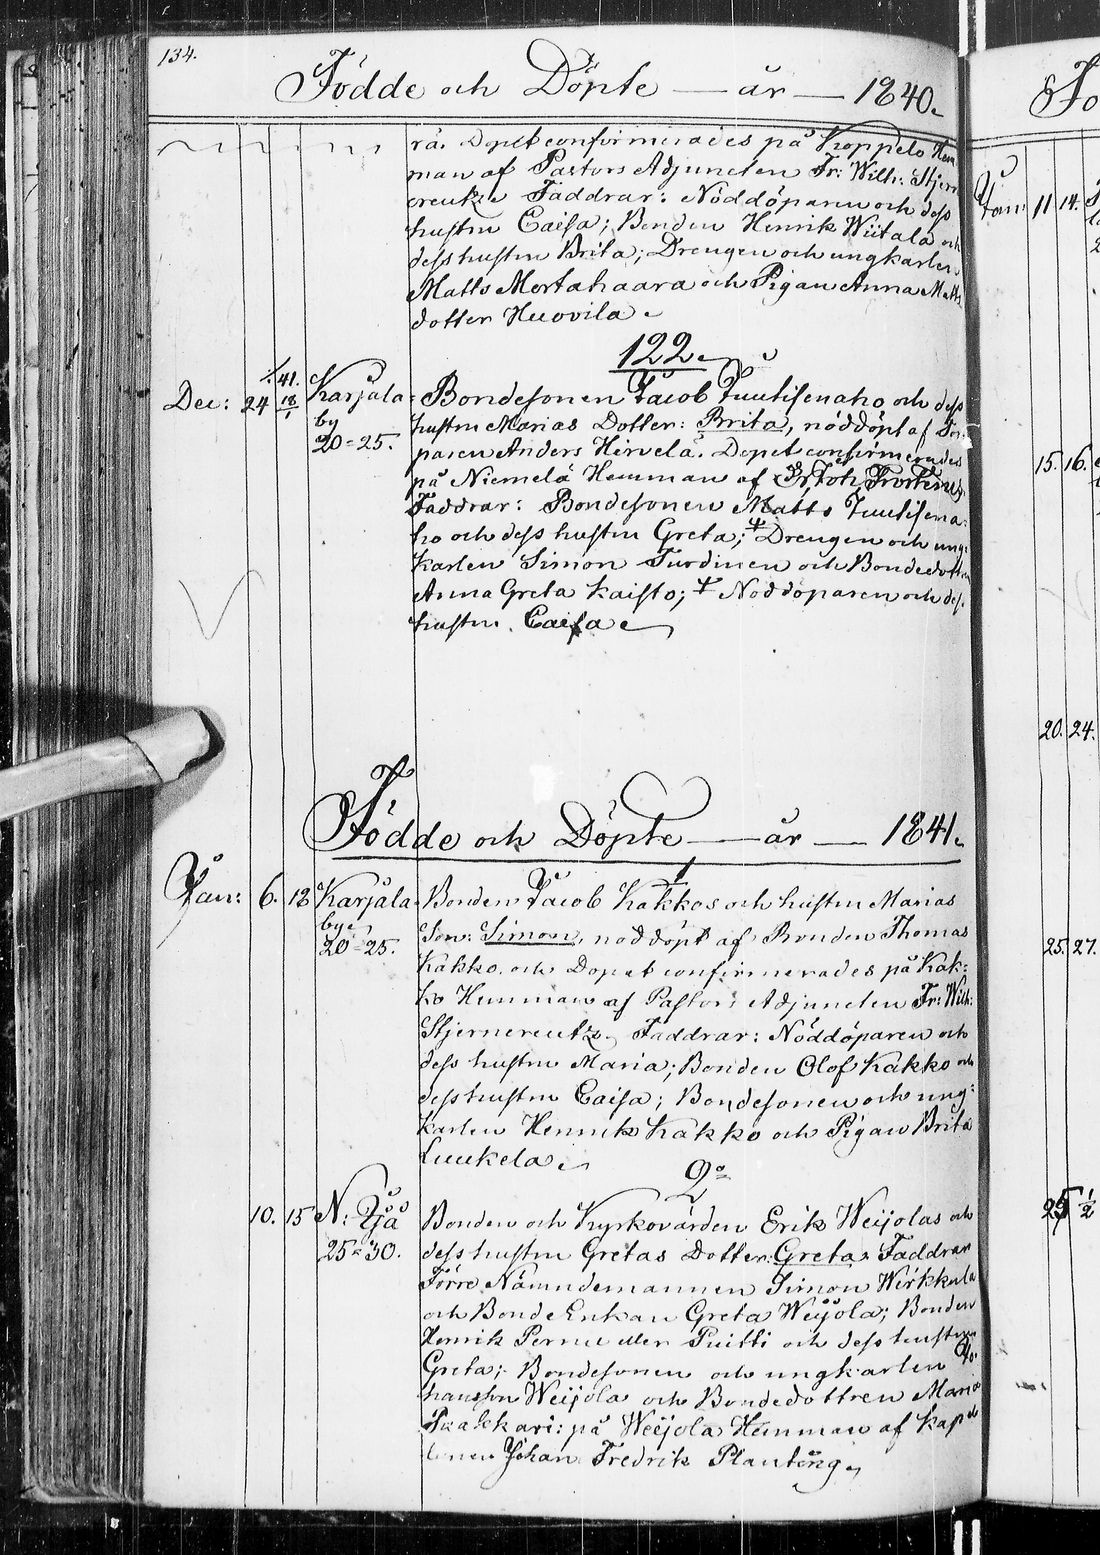 134.
Födde och Döpte — år — 1840.
rå. Dopet confirmerades på Koppelo Hem
man af Pastors Adjuncten Fr: Wilh: Stjern
creutz. Faddrar: Nöddöparen och dess
hustru Caisa; Bonden Henrik Wiitala och
dess hustru Brita; Drengen och ungkarlen
Matts Mertahaara och Pigan Anna Matts
dotter Huovila.
122.
Dec: 24 1/41. 18/1 Karjala Bondesonen Jacob Juutisenaho och dess
by hustru Marias Dotter: Brita, nöddöpt af
20=25. paren Anders Hirvelä. Dopet confirmerades
på Niemelä Hemman af
Faddrar: Bondesonen Matts Juutisena:
ho och dess hustru Greta; Drengen och ung:
karlen Simon Turdinen och Bondedottren
Anna Greta Kaisto; Nöddöparen och des
hustru Caisa.
Födde och Döpte — år — 1841.
1
Jan: 6. 18 Karjala Bonden Jacob Kakkos och hustru Marias
bye Son: Simon, nöddöpt af Bonden Thomas
20=25. Kakko och Dopet confirmerades på Kak:
ko Hemman af Pastors Adjuncten Fr: Wilh:
Stjerncreutz. Faddrar: Nöddöparen och
dess hustru Maria; Bonden Olof Kakko och
dess hustru Caisa; Bondesonen och ung:
karlen Henrik Kakko och Pigan Brita
Luukela.
2
10. 15 N: Ijå Bonden och Kyrkovärden Erik Weijolas och
25=30. dess hustru Gretas Dotter: Greta. Faddrar
Förre Nämndemannen Simon Wirkkula
och Bonde Enkan Greta Weijola; Bonden
Henrik Pernu eller Puitti och dess hustru
Greta; Bondesonen och ungkarlen Jo:
han Weijola och Bondedottren Maria
Paakkari: på Weijola Hemman af Kapel
lanen Johan Fredrik Planting.
Fö
Jan: 11 14.
15. 16.
20. 24.
25. 27.